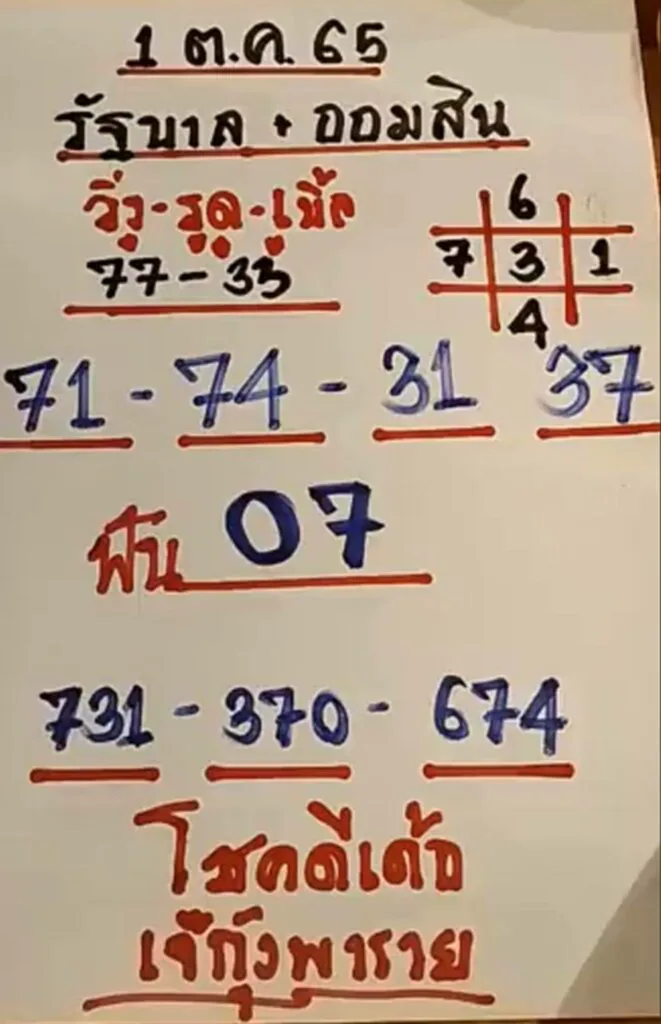 1 ต.ค. 65
รัฐบาล + ออมสิน
วิ่ง-รูด-เบิ้ล
77-33
6
7 3 1
4
71 - 74 - 31 37
ฟัน 07
731 - 370 - 674
โชคดีเด้อ
เจ๊กุ้งพาราย